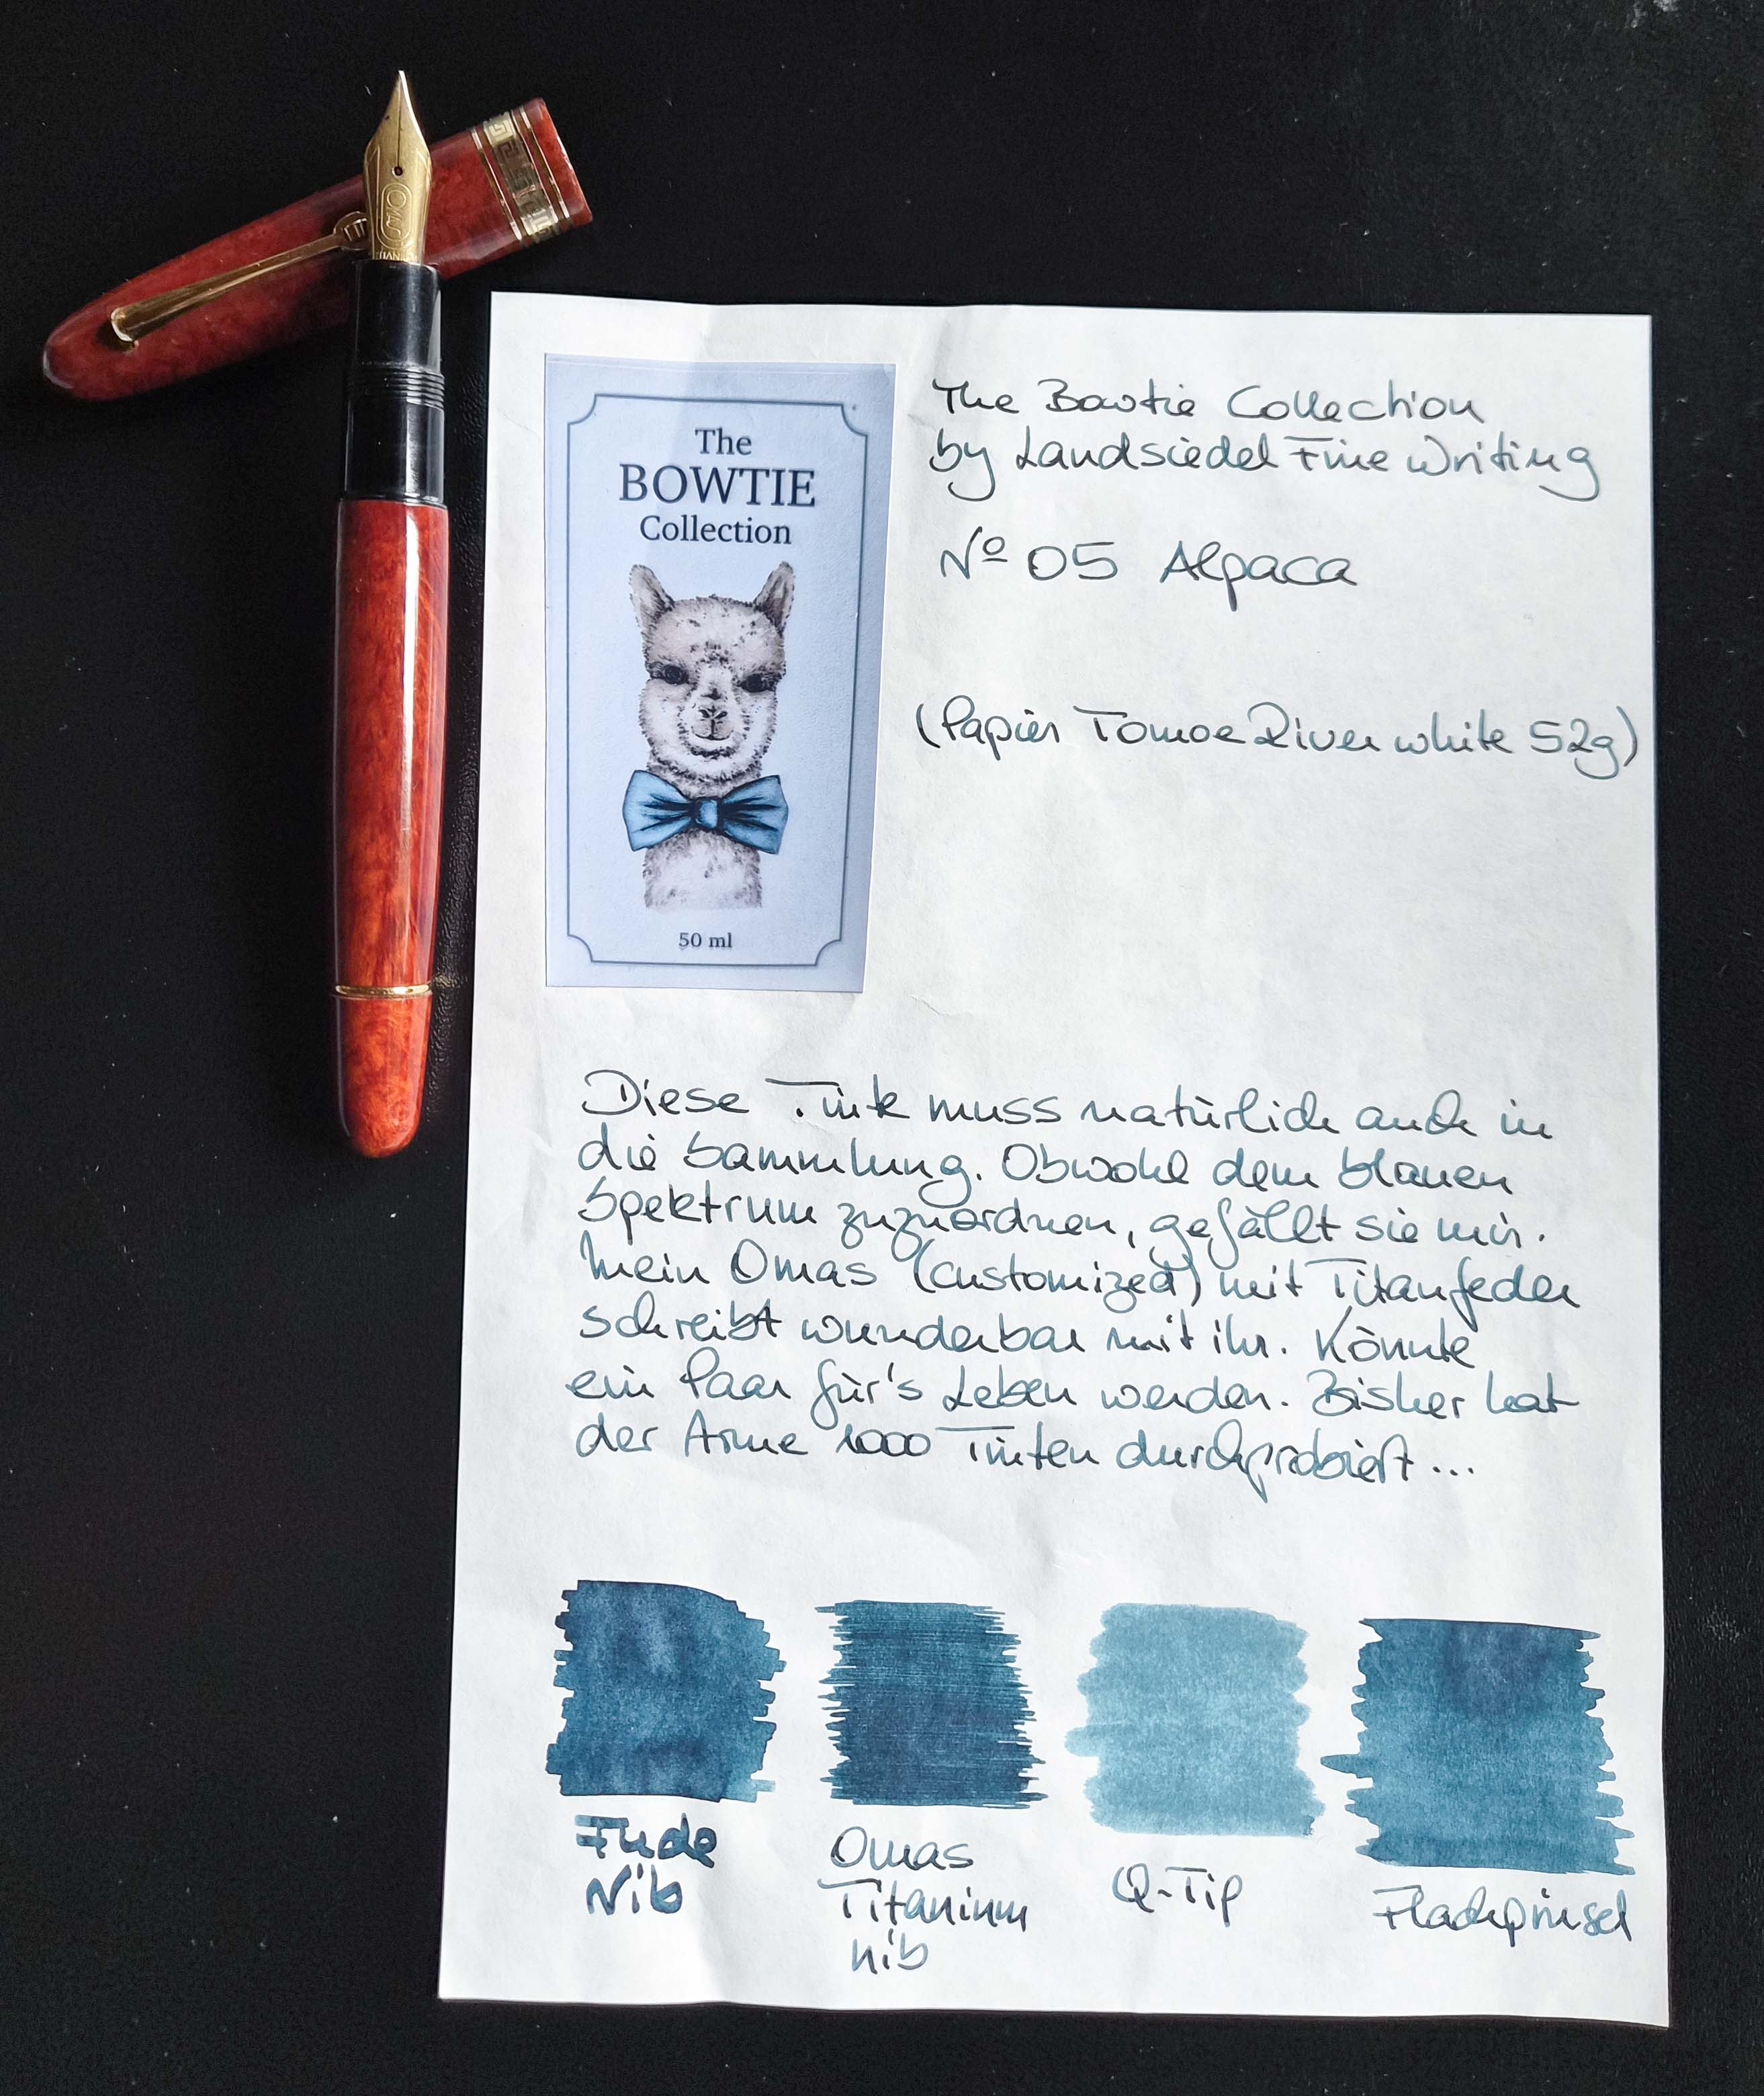 OMAS
TITANIO
The
BOWTIE
Collection
50 ml
The Bowtie Collection
by Landsiedel Fine Writing
Nº 05 Alpaca
(Papier Tomoe River white 52g)
Diese Tinte muss natürlich auch in
die Sammlung. Obwohl dem blauen
Spektrum zuzuordnen, gefällt sie mir.
Mein Omas (customized) mit Titanfeder
schreibt wunderbar mit ihr. Könnte
ein Paar für's Leben werden. Bisher hat
der Arme 1000 Tinten durchprobiert...
Fude
Nib
Omas
Titanium
nib
Q-Tip
Flachpinsel